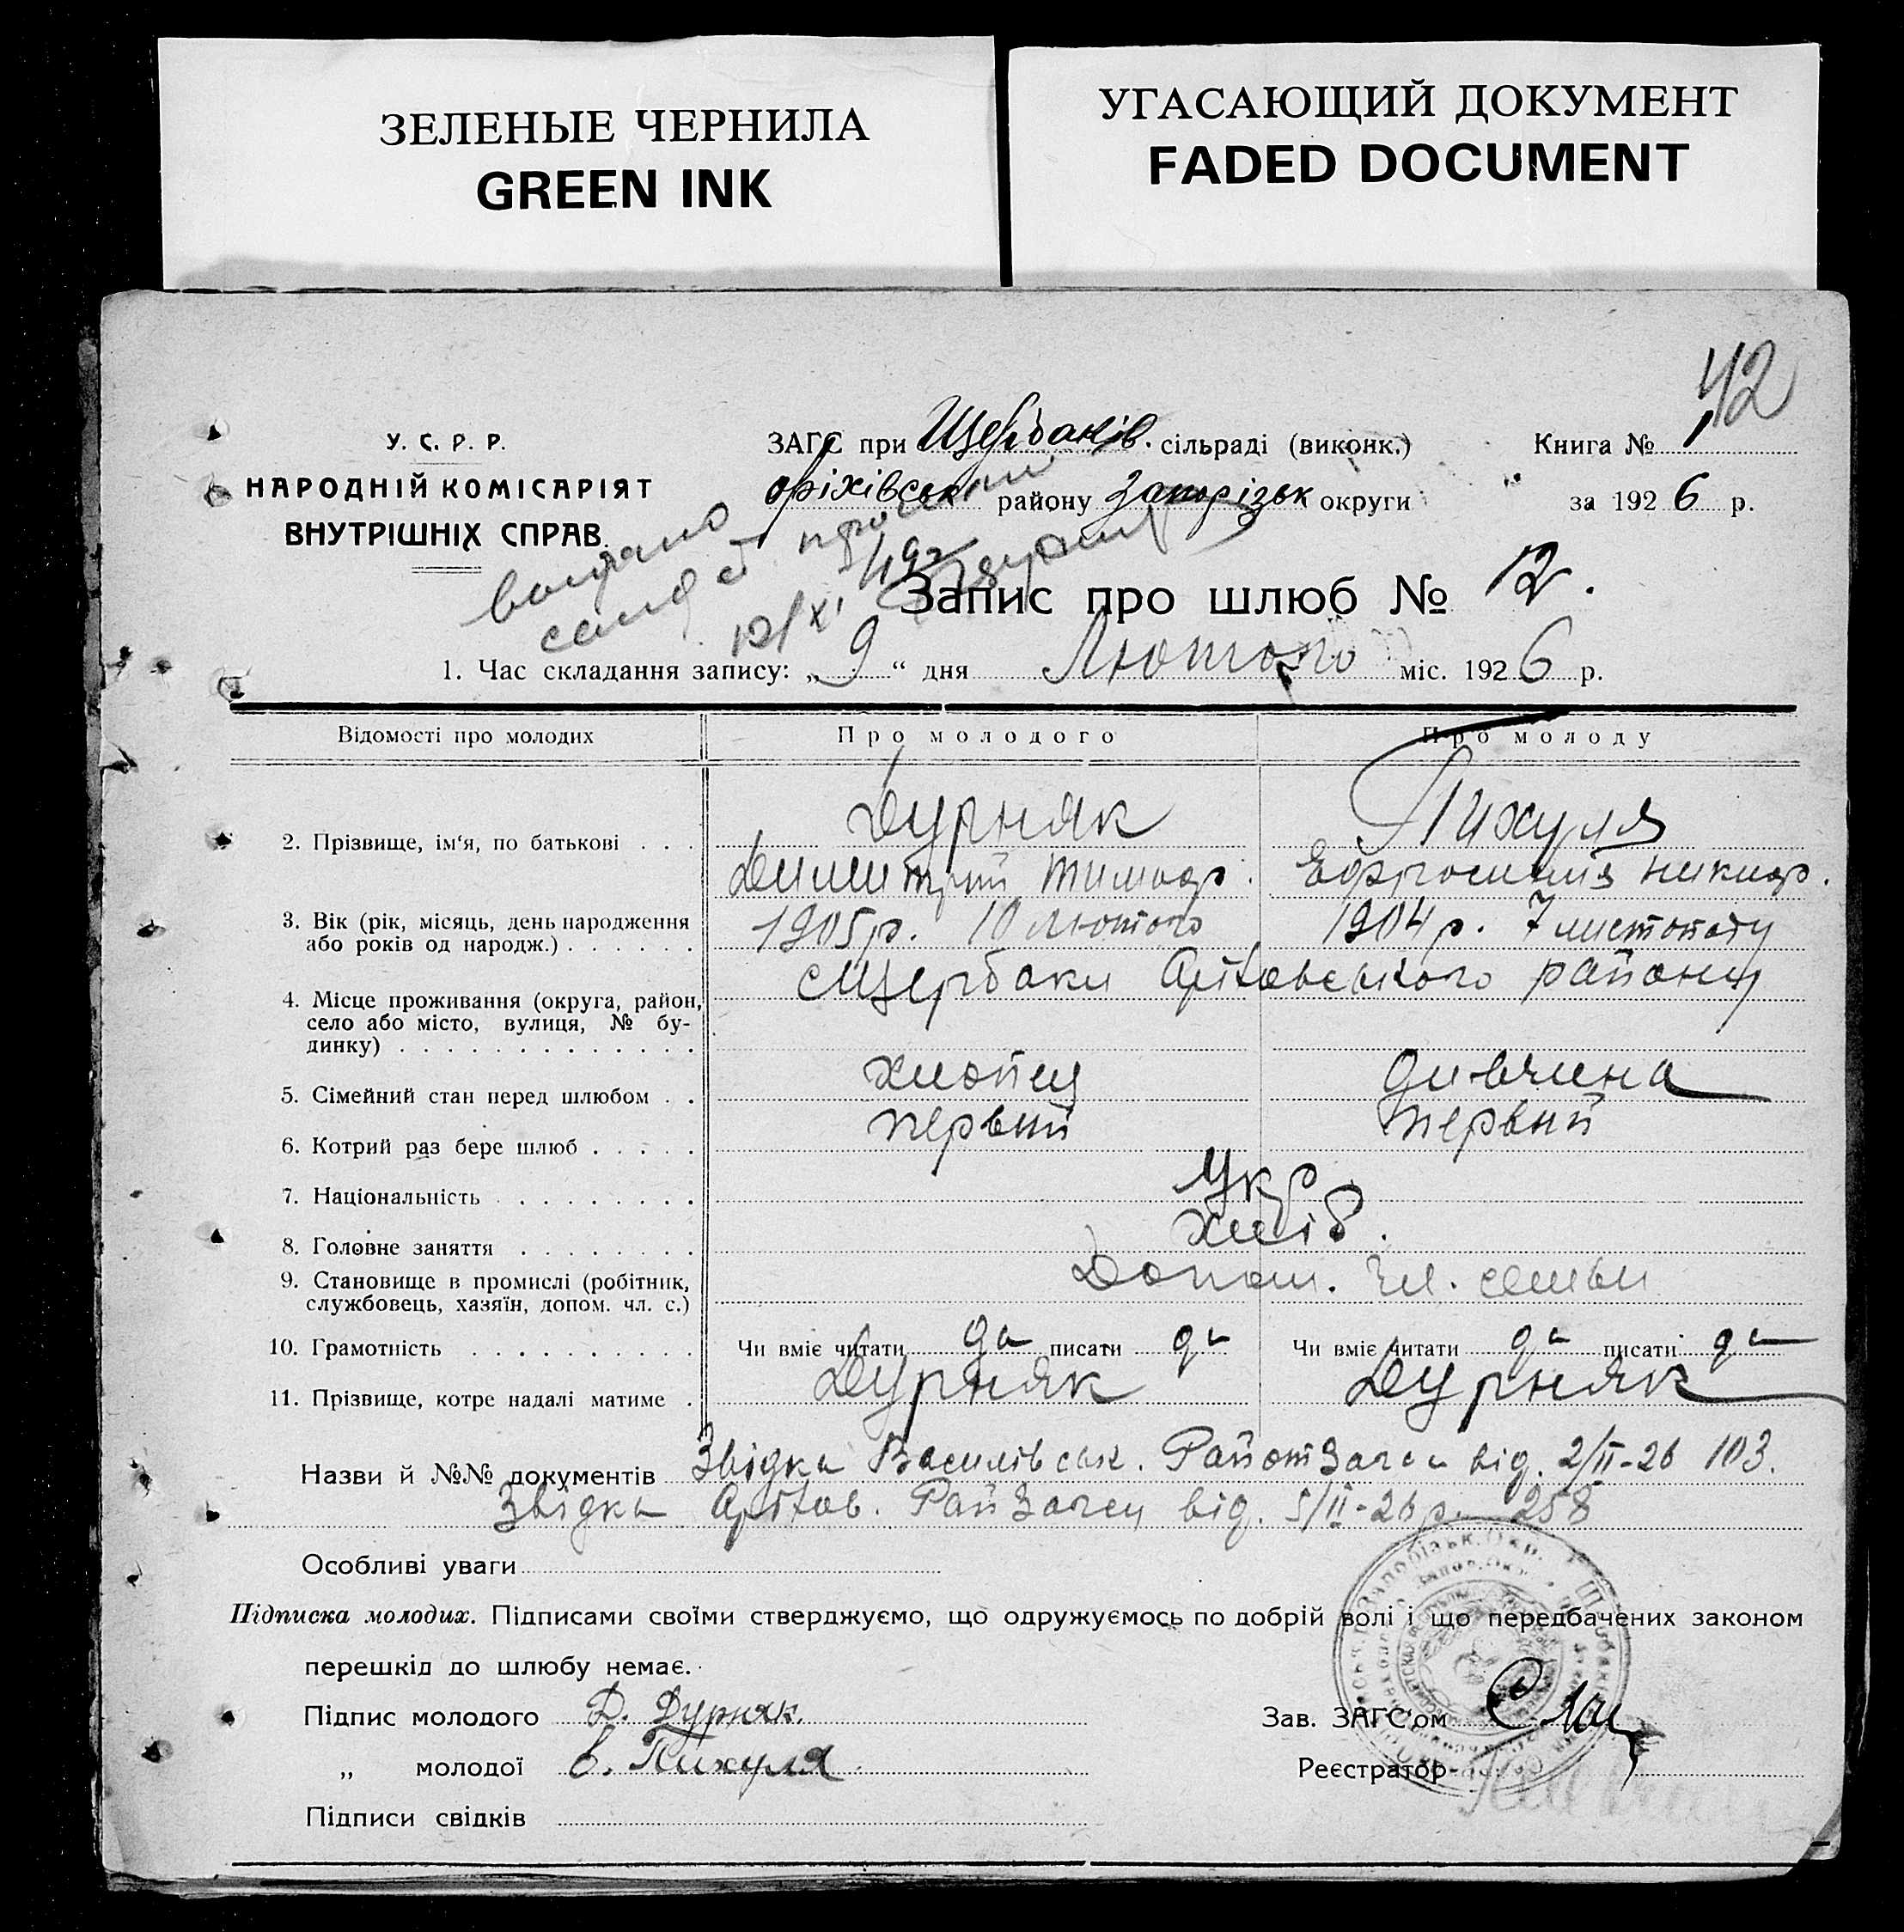 ЗЕЛЕНЫЕ ЧЕРНИЛА
GREEN INK
УГАСАЮЩИЙ ДОКУМЕНТ
FADED DOCUMENT
42
У. С. Р. Р.
НАРОДНІЙ КОМІСАРІЯТ
ВНУТРІШНІХ СПРАВ.
ЗАГС при Щербаків. сільраді (виконк.)
Оріхівськ району Запорізьк округи
Книга № 1
за 1926 р.
видано
Запис про шлюб № 12.
1. Час складання запису: „9“ дня Лютого міс. 1926 р.
Відомості про молодих Про молодого Про молоду
2. Прізвище, ім‘я, по батькові . . . Дурняк Пихуля
Димитрий Тимоф. Ефросиния Никиф.
3. Вік (рік, місяць, день народження 1905р. 10 Лютого 1904р. 7 листопаду
або років од народж.) . . . . . .
4. Місце проживання (округа, район, с Щербаки Оріховського району
село або місто, вулиця, № бу-
динку) . . . . . . . . . . . . .
5. Сімейний стан перед шлюбом . . хлопец дивчина
6. Котрий раз бере шлюб . . . . . первий первий
7. Національність . . . . . . . . . Укр.
8. Головне заняття . . . . . . . . хліб.
9. Становище в промислі (робітник, Допом. чл. семьи
службовець, хазяїн, допом. чл. с.)
10. Грамотність . . . . . . . . . . Чи вміє читати да писати да Чи вміє читати да писати да
11. Прізвище, котре надалі матиме . Дурняк Дурняк
Назви й №№ документів Звідка Василівськ. від. 2/II-26 103.
Звідка Оріхов. РайЗагсу від. 5/II-26р. 258
Особливі уваги
Підписка молодих. Підписами своїми стверджуємо, що одружуємось по добрій волі і що передбачених законом
перешкід до шлюбу немає.
Підпис молодого Д. Дурняк.
„ молодої Е. Пихуля
Підписи свідків
Зав. ЗАГС‘ом
Реєстратор